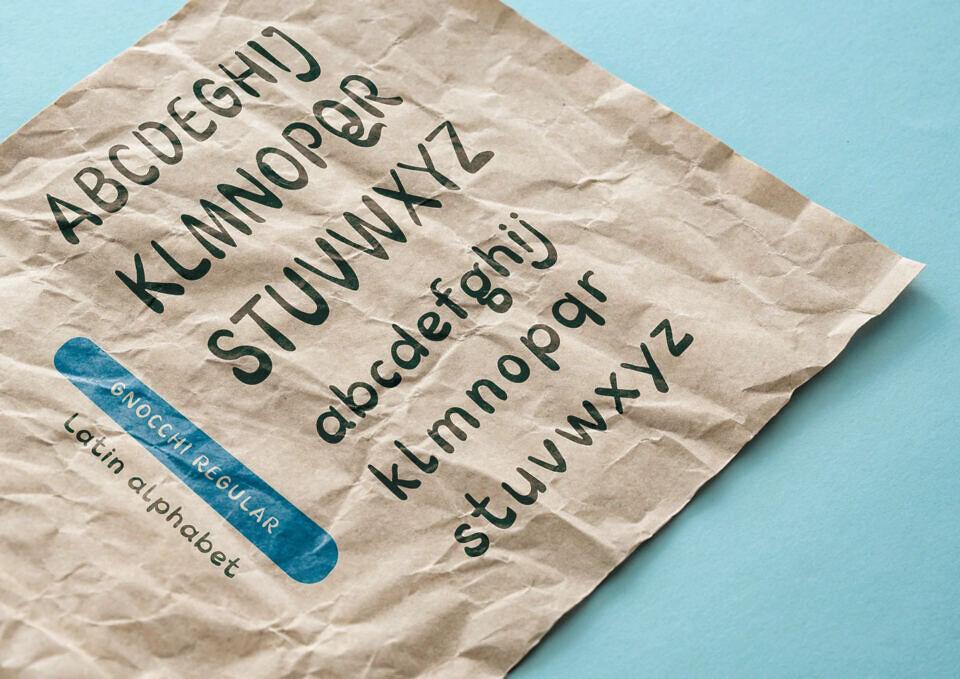 ABCDEGHIJ
KLMNOPQR
STUVWXYZ
abcdefghij
klmnopqr
stuvwxyz
GNOCCHI REGULAR
Latin alphabet